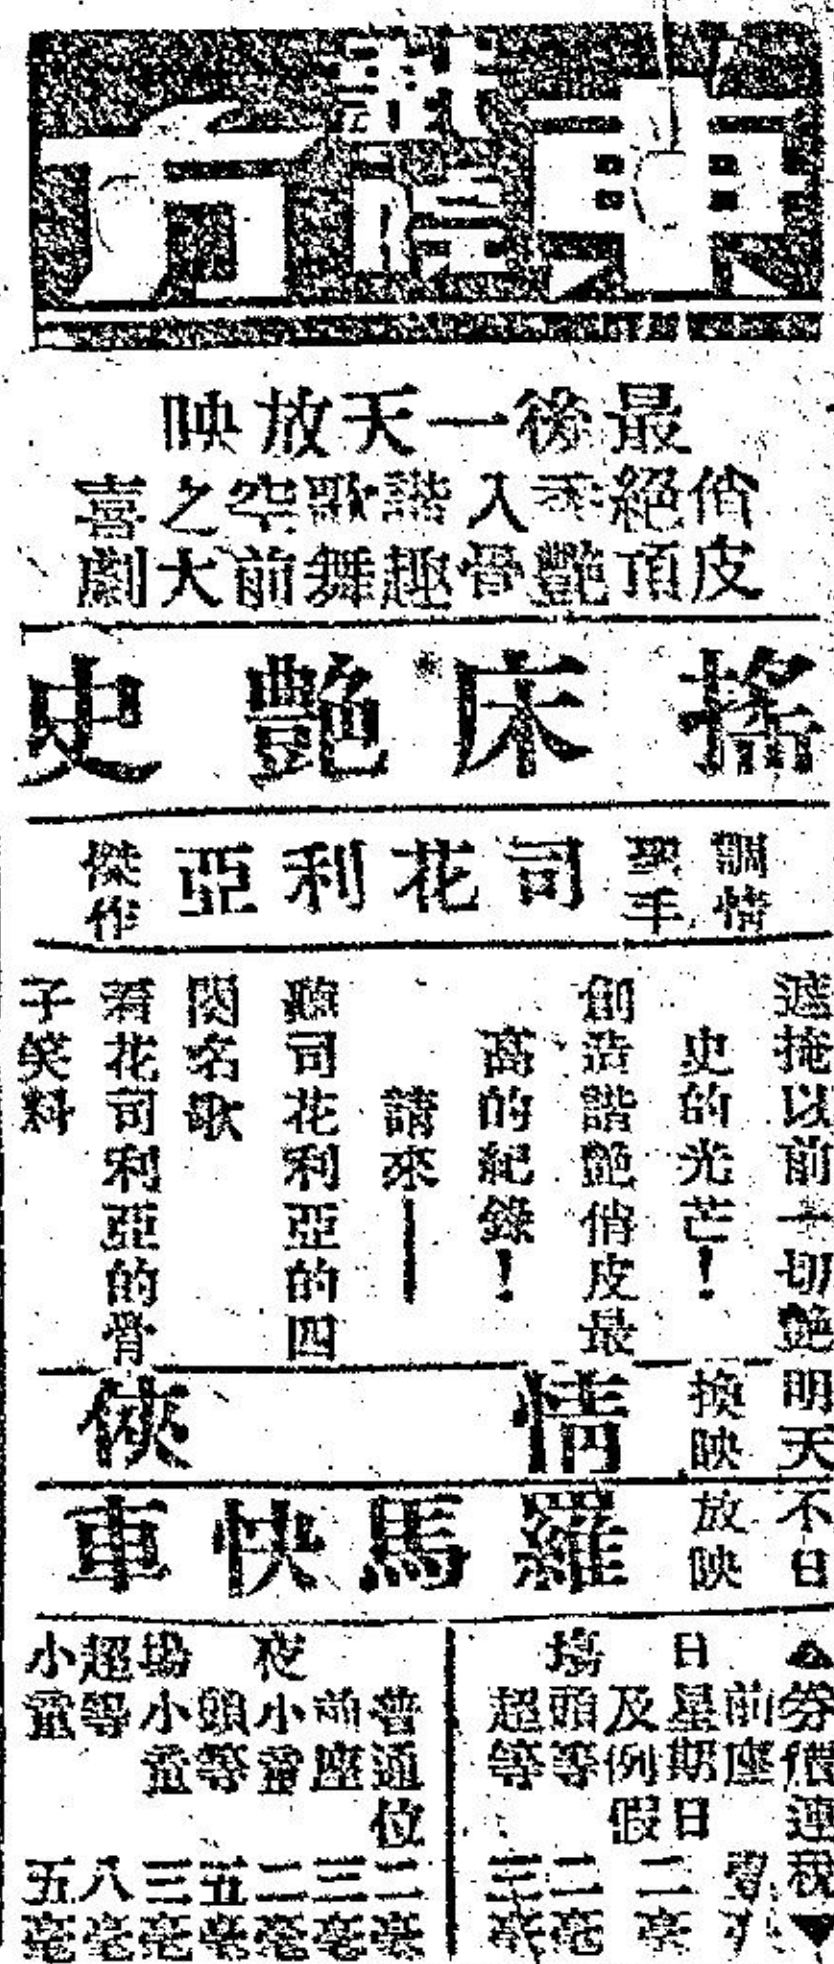 東方
戲院
最後一天放映
俏皮絕頂
乖艷入骨
諧趣歌舞
空前之大喜劇
搖床艷史
調情聖手
司花利亞
傑作
遮掩以前一切艷
史的光芒！
創造諧艷俏皮最
高的紀錄！
請來——
聽司花利亞的四
闋名歌
看花司利亞的骨
子笑料
明天換映
情俠
不日放映
羅馬快車
券價連稅
日場
前座
星期日及例假 二毫
頭等 二毫
超等 三毫
夜場
普通位 二毫
前座 三毫
小童 二毫
頭等 五毫
小童 三毫
超等 八毫
小童 五毫